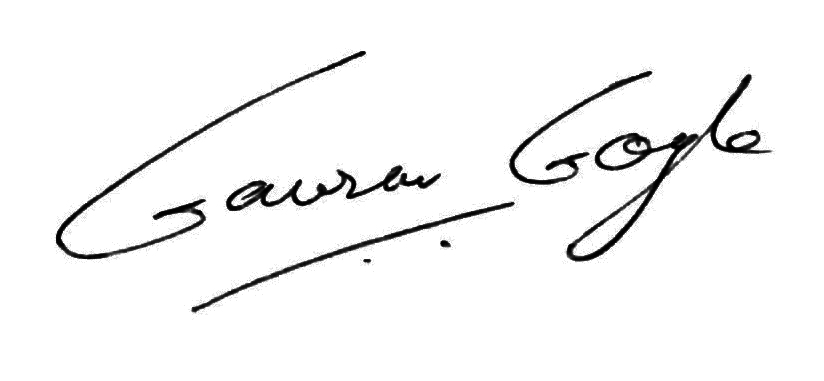 Gaurav Goyle